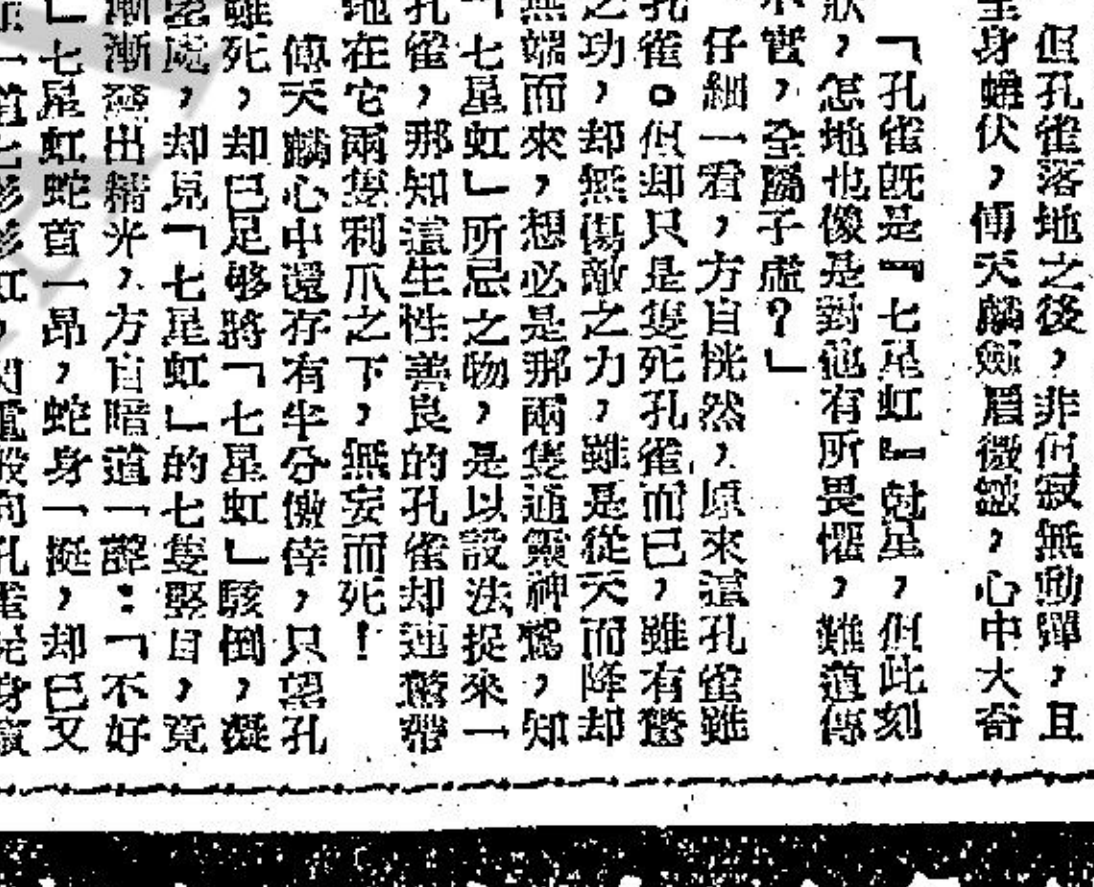 但孔雀落地之後，非但寂無動彈，且
全身蜷伏，傅天麟劍眉微皺，心中大奇
「孔雀既是『七星虹』尅星，但此刻
狀，怎地也像是對他有所畏懼，難道傳
不實，全屬子虛？」
仔細一看，方自恍然，原來這孔雀雖
孔雀。但却只是隻死孔雀而已，雖有驚
之功，却無傷敵之力，雖是從天而降却
無端而來，想必是那兩隻通靈神鷲，知
「七星虹」所忌之物，是以設法捉來一
孔雀，那知這生性善良的孔雀却連驚帶
地在它兩隻利爪之下，無妄而死！
傅天麟心中還存有半分僥倖，只望孔
雖死，却已足够將「七星虹」駭倒，凝
望處，却見「七星虹」的七隻豎目，竟
漸漸露出精光，方自暗道一聲：「不好
」七星虹蛇首一昂，蛇身一挺，却已又
一道七彩彩虹，閃電般向孔雀屍身竄